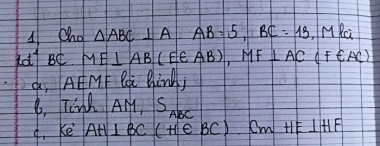 1, Cho ΔABC ⊥ A AB = 5, BC = 13, M là
tđ BC. ME ⊥ AB (E ∈ AB), MF ⊥ AC (F ∈ AC)
a, AEMF là hình;
b, Tính AM, S_ABC
c, Kẻ AH ⊥ BC (H ∈ BC) Cm HE ⊥ HF